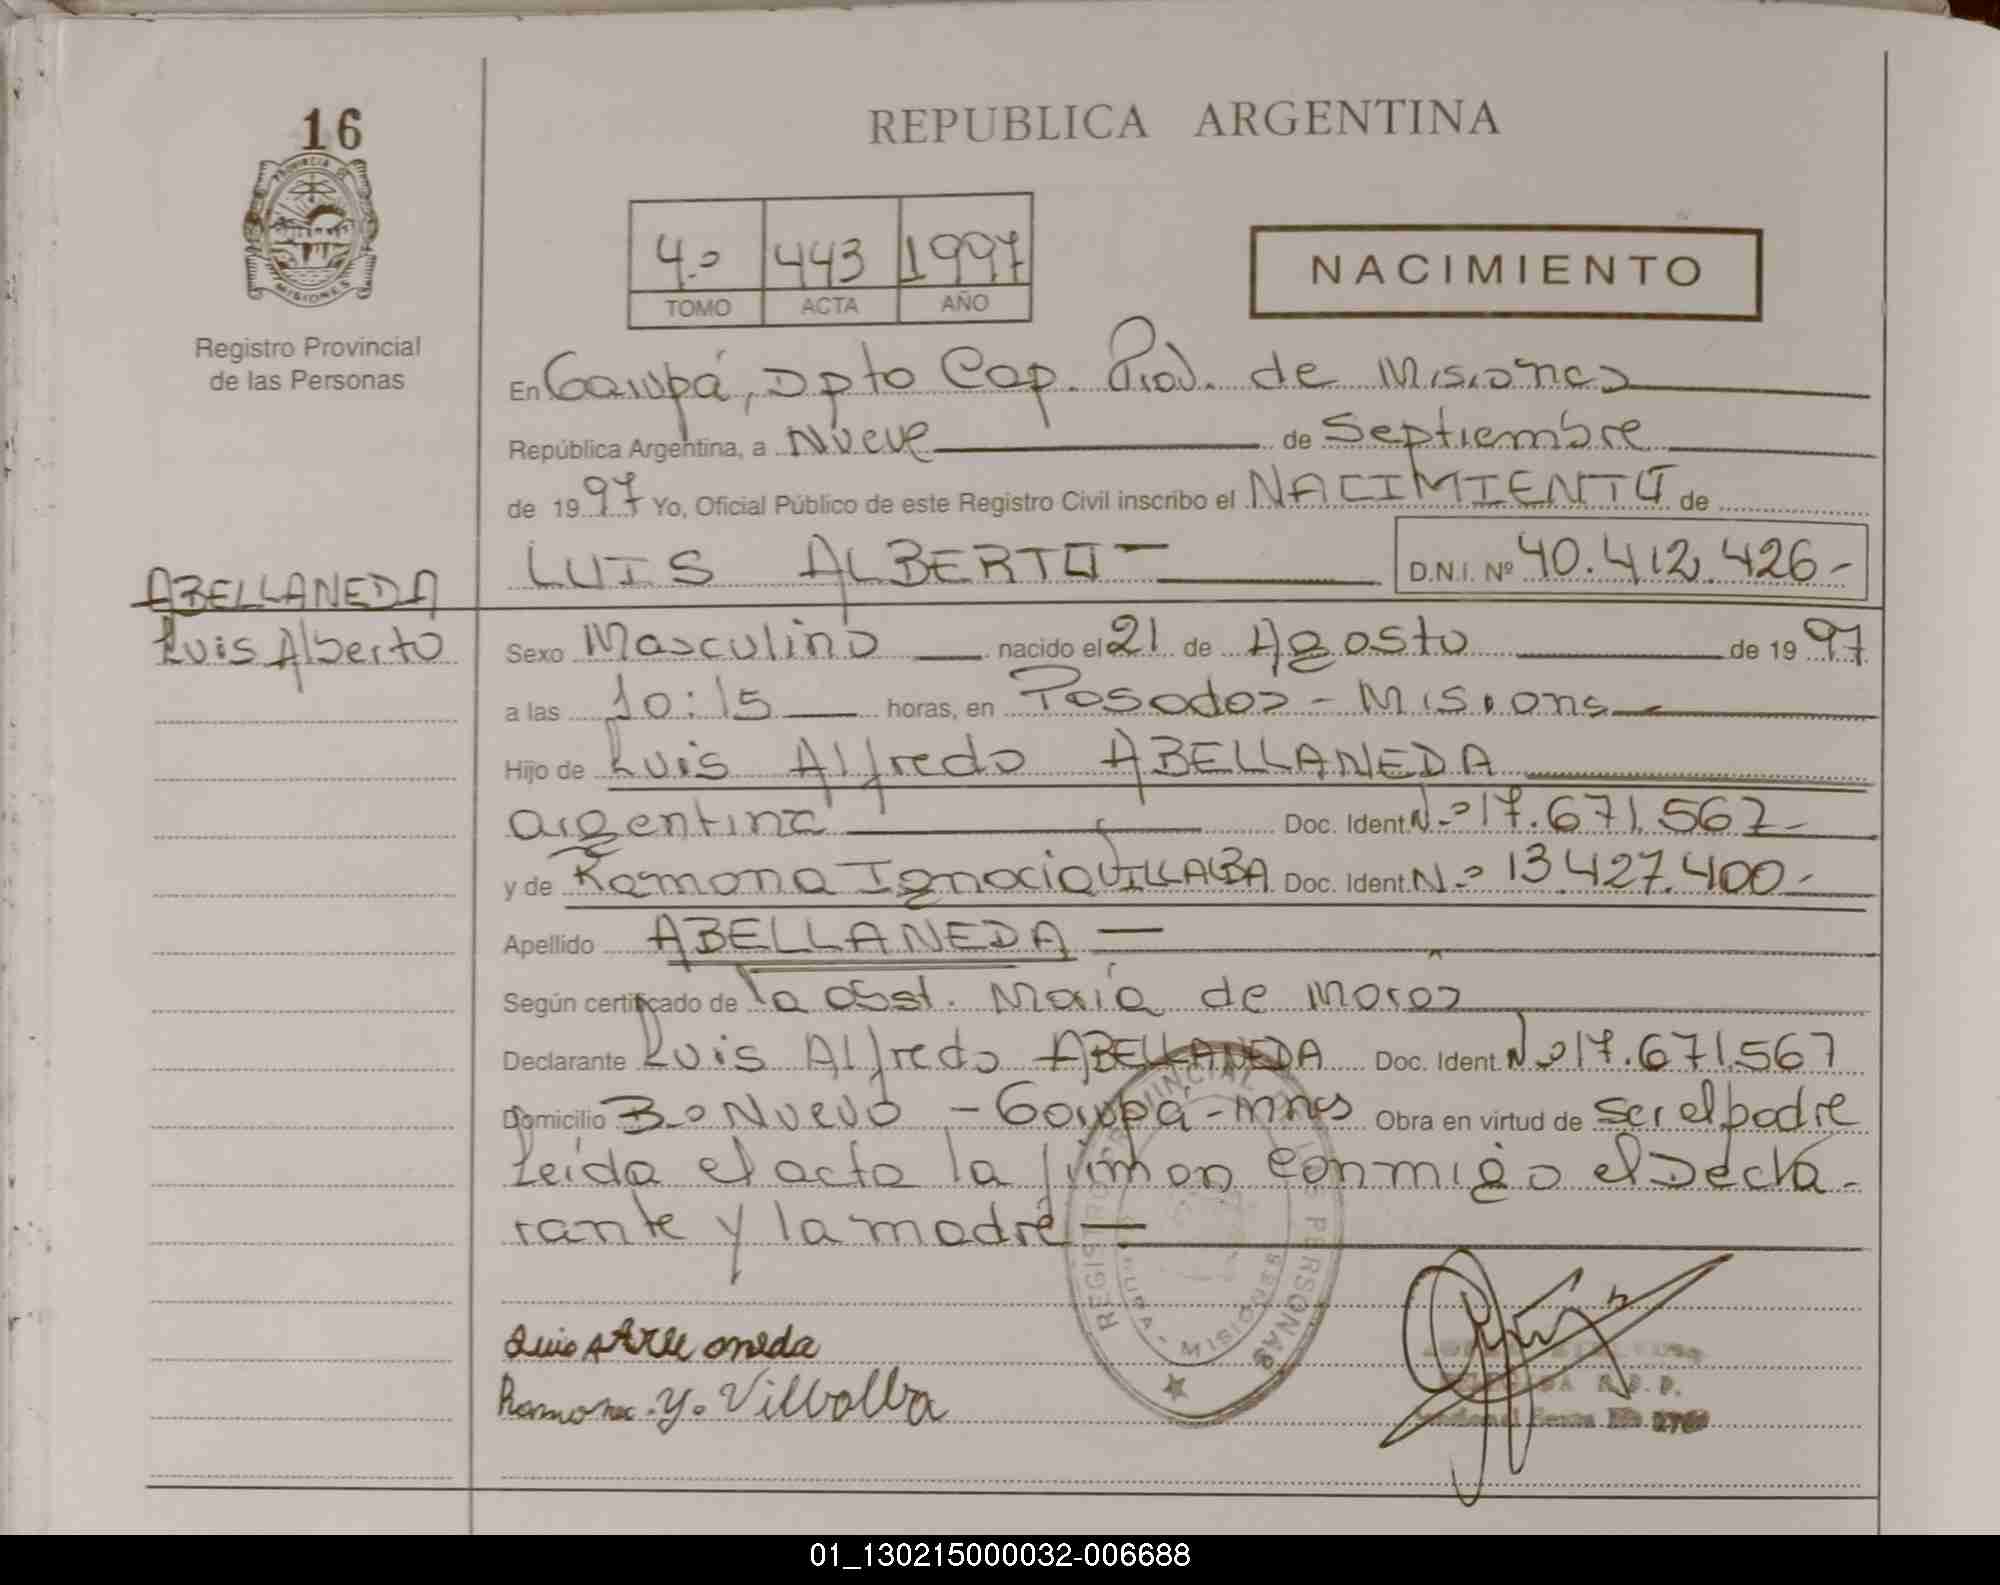 16
REPUBLICA ARGENTINA
PROVINCIA DE
MISIONES
Registro Provincial
de las Personas
4º 443 1997
TOMO ACTA AÑO
NACIMIENTO
En Garupá, Dpto Cap. Prov. de Misiones
República Argentina, a Nueve de Septiembre
de 1997 Yo, Oficial Público de este Registro Civil inscribo el NACIMIENTO de
LUIS ALBERTO — D.N.I. Nº 40.412.426-
ABELLANEDA
Luis Alberto
Sexo Masculino nacido el 21 de Agosto de 1997
a las 10:15 horas, en Posadas - Misions
Hijo de Luis Alfredo ABELLANEDA
argentina Doc. Ident. Nº 17.671.567-
y de Ramona Ignacia VILLALBA Doc. Ident. Nº 13.427.400-
Apellido ABELLANEDA —
Según certificado de la obst. María de Moras
Declarante Luis Alfredo ABELLANEDA Doc. Ident. Nº 17.671.567
Domicilio Bº Nuevo - Garupá - Mnes Obra en virtud de ser el padre
Leída el acta la firman conmigo el Decla-
rante y la madre —
REGISTRO PROVINCIAL PERSONAS
MISIONES
Ramona Y. Villalba
R.P.P.
01_130215000032-006688